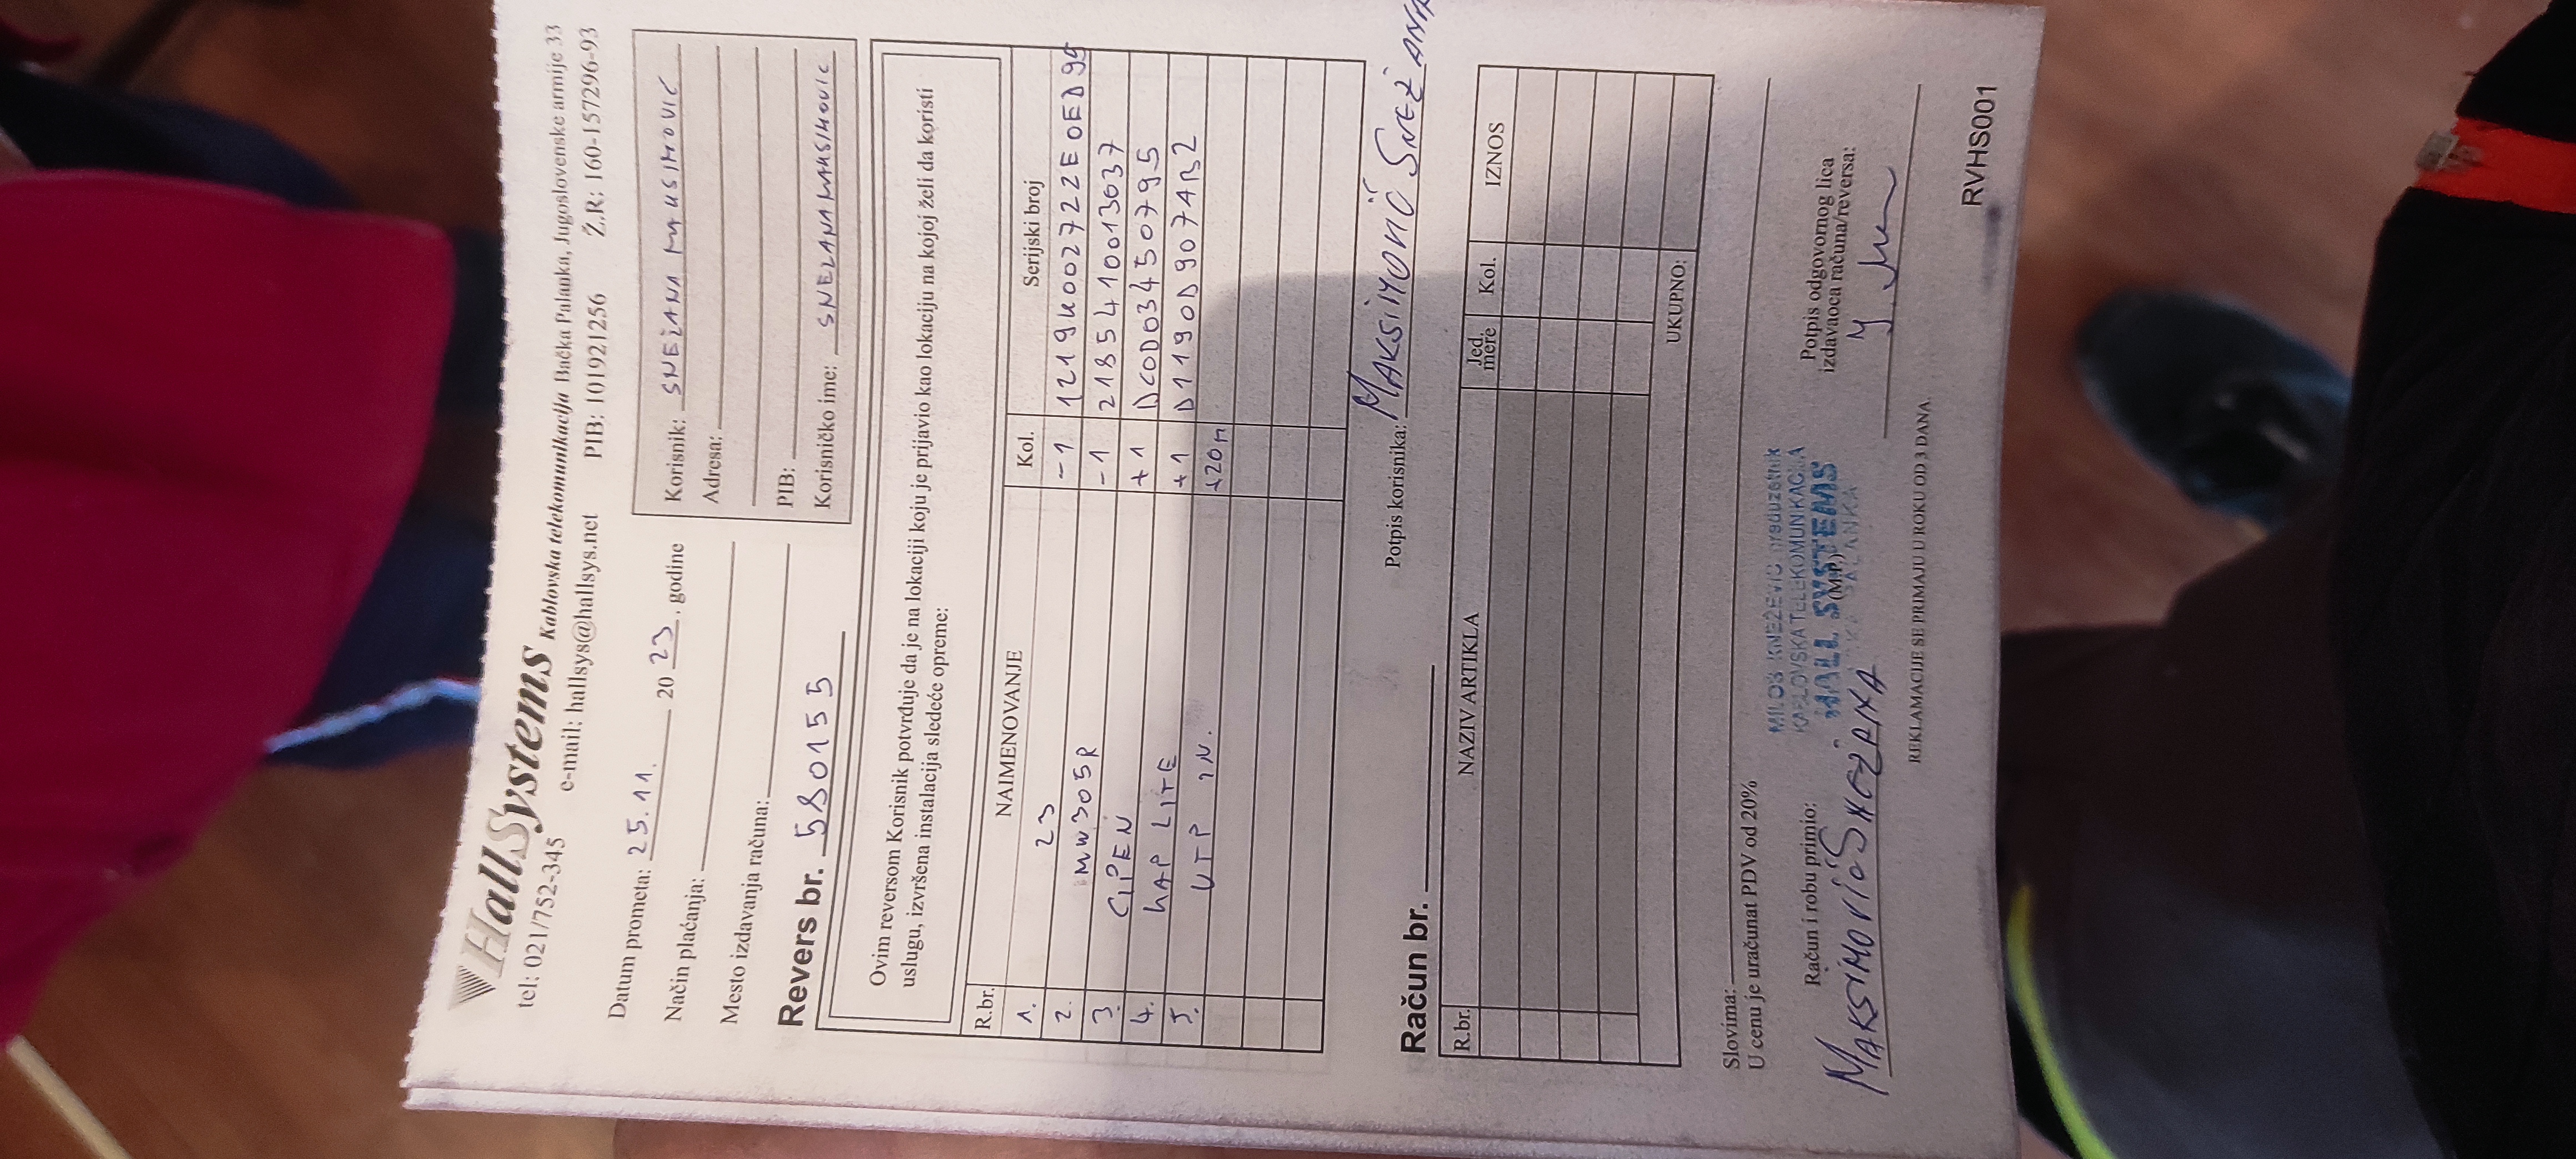 HallSystems Kablovska telekomunikacija Bačka Palanka, Jugoslovenske armije 33
tel: 021/752-345 e-mail: hallsys@hallsys.net PIB: 101921256 Ž.R.: 160-157296-93
Datum prometa: 25.11. 2023, godine
Način plaćanja:
Mesto izdavanja računa:
Korisnik: SNEŽANA MAKSIMOVIĆ
Adresa:
PIB:
Korisničko ime: SNEZANAMAKSIMOVIC
Revers br. 580155
Ovim reversom Korisnik potvrđuje da je na lokaciji koju je prijavio kao lokaciju na kojoj želi da koristi
uslugu, izvršena instalacija sledeće opreme:
R.br. NAIMENOVANJE Kol. Serijski broj
1. 23 -1 1219K002722E0ED99
2. MW305R -1 2185410013637
3. CIPEN +1 DC0D03450795
4. hAP LITE +1 D1190D9074B2
5. UTP IN. +20m
Potpis korisnika: MAKSIMOVIĆ SNEŽANA
Račun br.
R.br. NAZIV ARTIKLA Jed. mere Kol. IZNOS
UKUPNO:
Slovima:
U cenu je uračunat PDV od 20%
Račun i robu primio:
MAKSIMOVIĆ SNEŽANA
MILOŠ KNEŽEVIĆ preduzetnik
KABLOVSKA TELEKOMUNIKACIJA
HALL SYSTEMS
(M.P.)
BAČKA PALANKA
Potpis odgovornog lica
izdavaoca računa/reversa:
REKLAMACIJE SE PRIMAJU U ROKU OD 3 DANA.
RVHS001